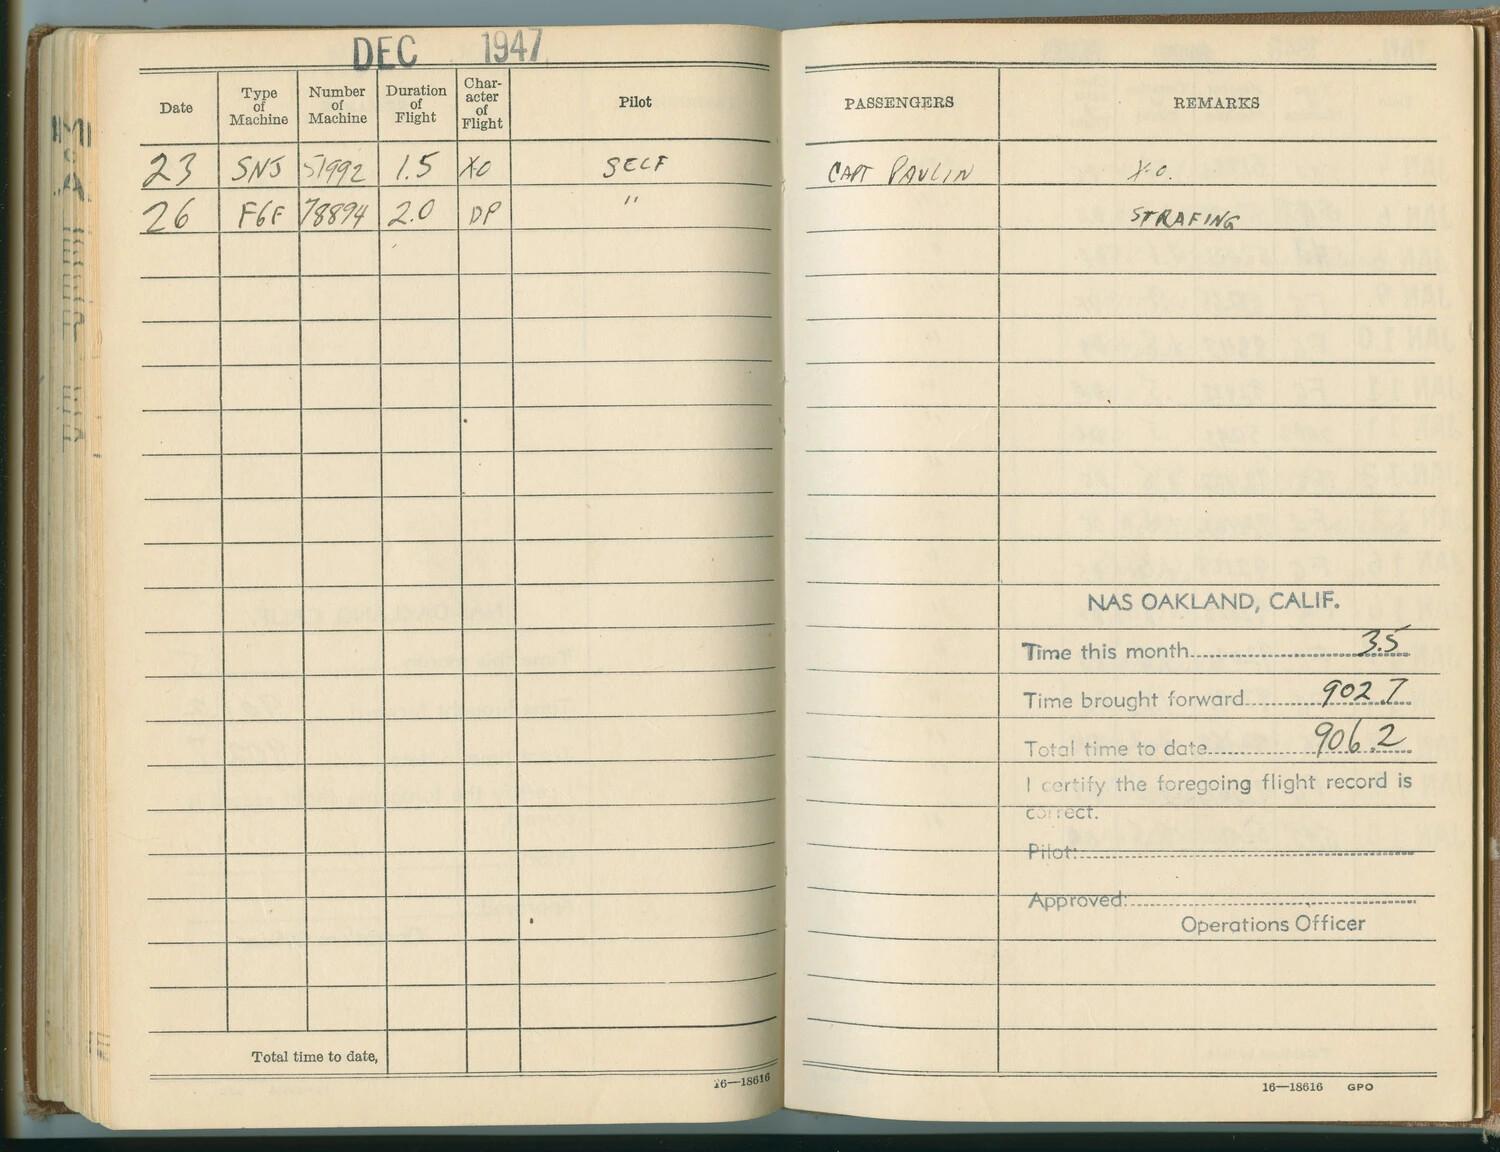 DEC 1947
Date Type of Machine Number of Machine Duration of Flight Char- acter of Flight Pilot PASSENGERS REMARKS
23 SNJ 51992 1.5 XO SELF CAPT PAULIN X.O.
26 F6F 78894 2.0 DP " STRAFING
NAS OAKLAND, CALIF.
Time this month 3.5
Time brought forward 902.7
Total time to date 906.2
I certify the foregoing flight record is
correct.
Pilot:
Approved:
Operations Officer
Total time to date,
16—18616
16—18616 GPO